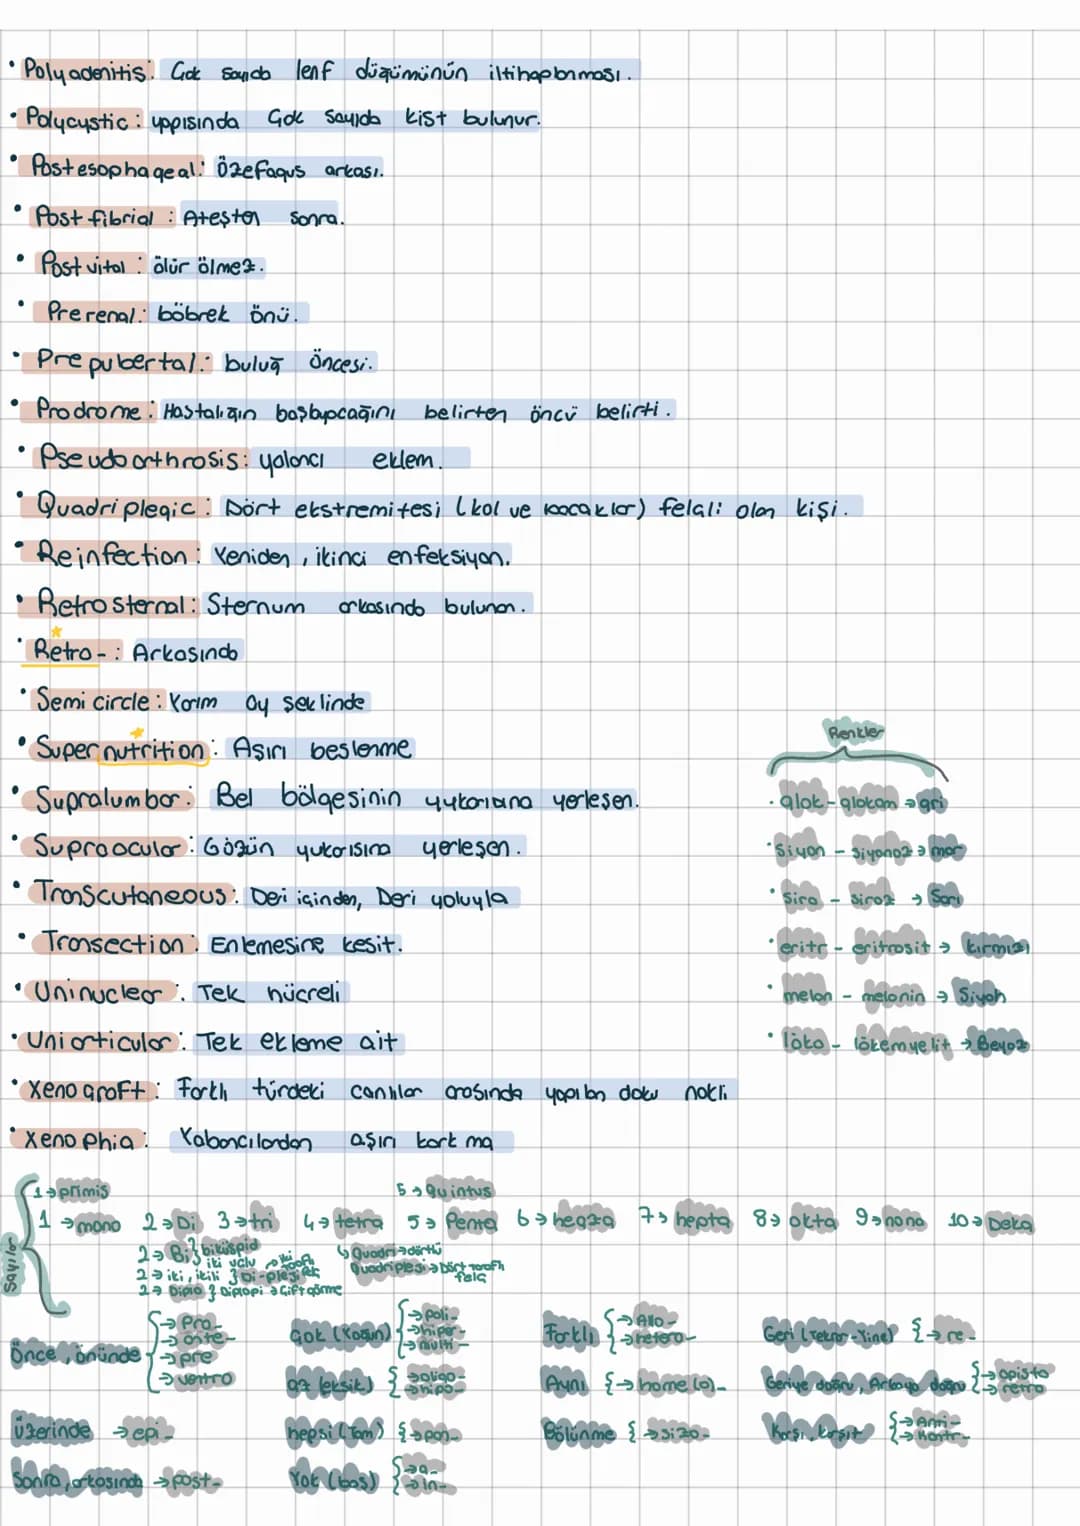 • Polyadenitis: Çok sayıda lenf düğümünün iltihaplanması.
• Polycystic: yapısında Çok sayıda kist bulunur.
• Postesophageal: Özefagus arkası.
• Post fibrial: Ateşten sonra.
• Post vital: ölür ölmez.
• Prerenal: böbrek önü.
• Prepubertal: buluğ öncesi.
• Prodrome: Hastalığın başlayacağını belirten öncü belirti.
• Pseudo orthrosis: yalancı eklem.
• Quadriplegic: Dört ekstremitesi (kol ve bacaklar) felçli olan kişi.
• Reinfection: Yeniden, ikinci enfeksiyon.
• Retrosternal: Sternum arkasında bulunan.
• Retro-: Arkasında
• Semi circle: Yarım ay şeklinde
• Supernutrition: Aşırı beslenme
• Supralumbar: Bel bölgesinin yukarısına yerleşen.
• Supraocular: Gözün yukarısına yerleşen.
• Transcutaneous: Deri içinden, Deri yoluyla
• Transection: Enlemesine kesit.
• Uninuclear: Tek hücreli
• Uniarticular: Tek ekleme ait
• Xenograft: Farklı türdeki canlılar arasında yapılan doku nakli
• Xenophia: Yabancılardan aşırı korkma
Renkler
• glok - glokom → gri
• siyan - siyanoz → mor
• siro - siroz → Sarı
• eritr - eritrosit → kırmızı
• melan - melanin → Siyah
• löko - lökemyelit → Beyaz
Sayılar
1 → primis
5 → Quintus
1 → mono 2 → Di 3 → tri 4 → tetra 5 → Penta 6 → hegza 7 → hepta 8 → okta 9 → nona 10 → Deka
2 → Bi } biküspid
iki uçlu
2 → iki, ikili } Di-pleji → iki taraflı felç
2 → Diplo } Diplopi → Çift görme
↳ Quadri → dörtlü
Quadriplesi → Dört taraflı felç
Önce, önünde { → Pro- → ante- → pre → ventro
Çok (Yoğun) { → poli- → hiper- → multi-
Farklı { → Allo- → hetero-
Geri (Tekrar-Yine) { → re-
az (eksik) { → oligo- → hipo-
Aynı { → home(o)-
Geriye doğru, Arkaya doğru { → opisto → retro
üzerinde → epi-
hepsi (Tam) { → pan-
Bölünme { → sizo-
Karşı, karşıt { → Anti- → kontr-
Sonra, arkasında → post-
Yok (boş) { → a- → in-